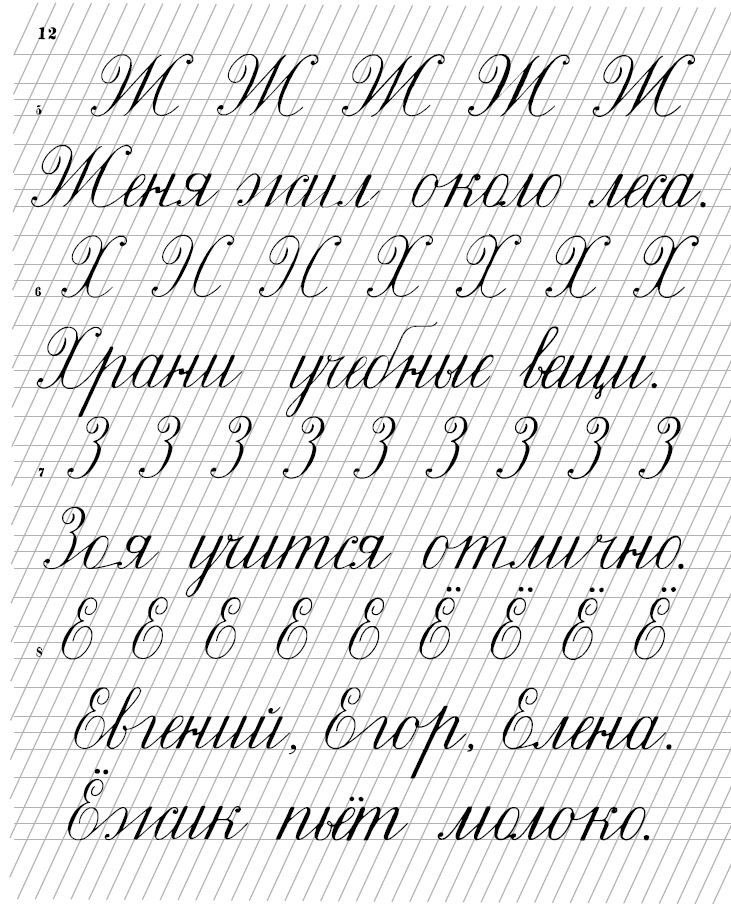 12
5 Ж Ж Ж Ж Ж
Женя жил около леса.
6 Х Х Х Х Х Х Х
Храни учебные вещи.
7 З З З З З З З З З
Зоя учится отлично.
8 Е Е Е Е Е Ё Ё Ё Ё
Евгений, Егор, Елена.
Ёжик пьёт молоко.